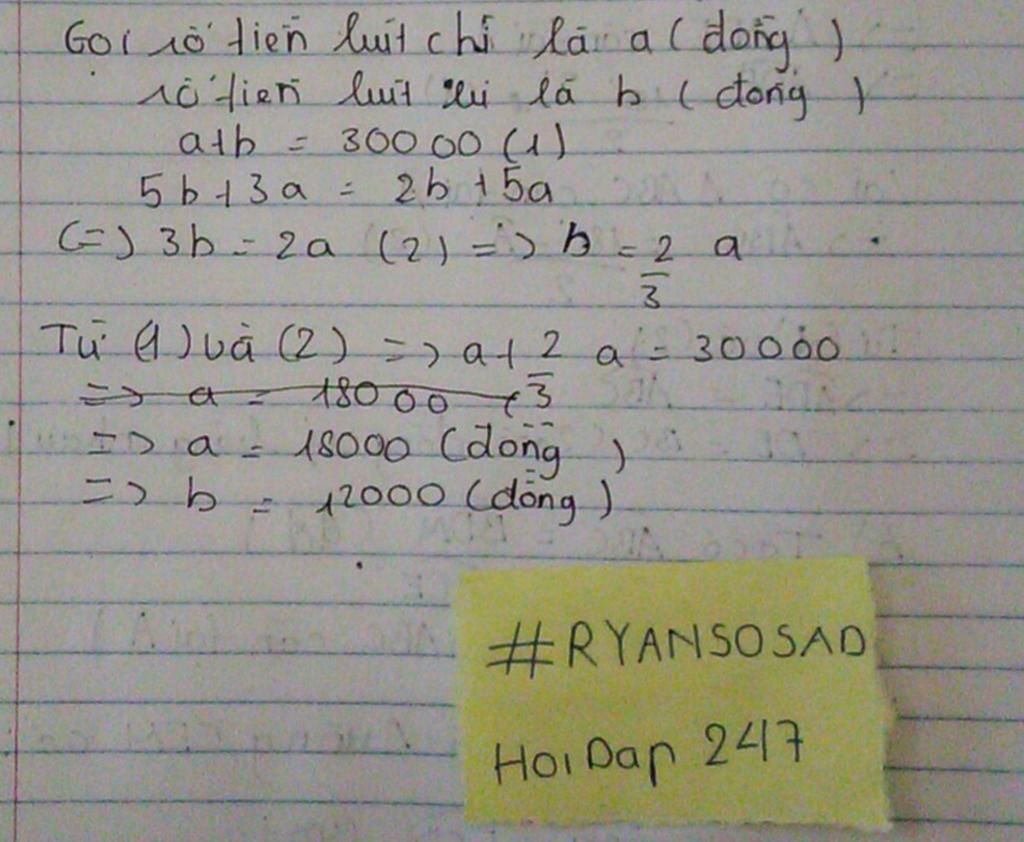 Gọi số tiền bút chì là a (đồng)
số tiền bút xi là b (đồng)
a+b = 30000 (1)
5b+3a = 2b+5a
(=) 3b = 2a (2) => b = 2/3 a
Từ (1) và (2) => a + 2/3 a = 30000
=> a = 18000
=> a = 18000 (đồng)
=> b = 12000 (đồng)
#RYANSOSAD
HoiDap 247